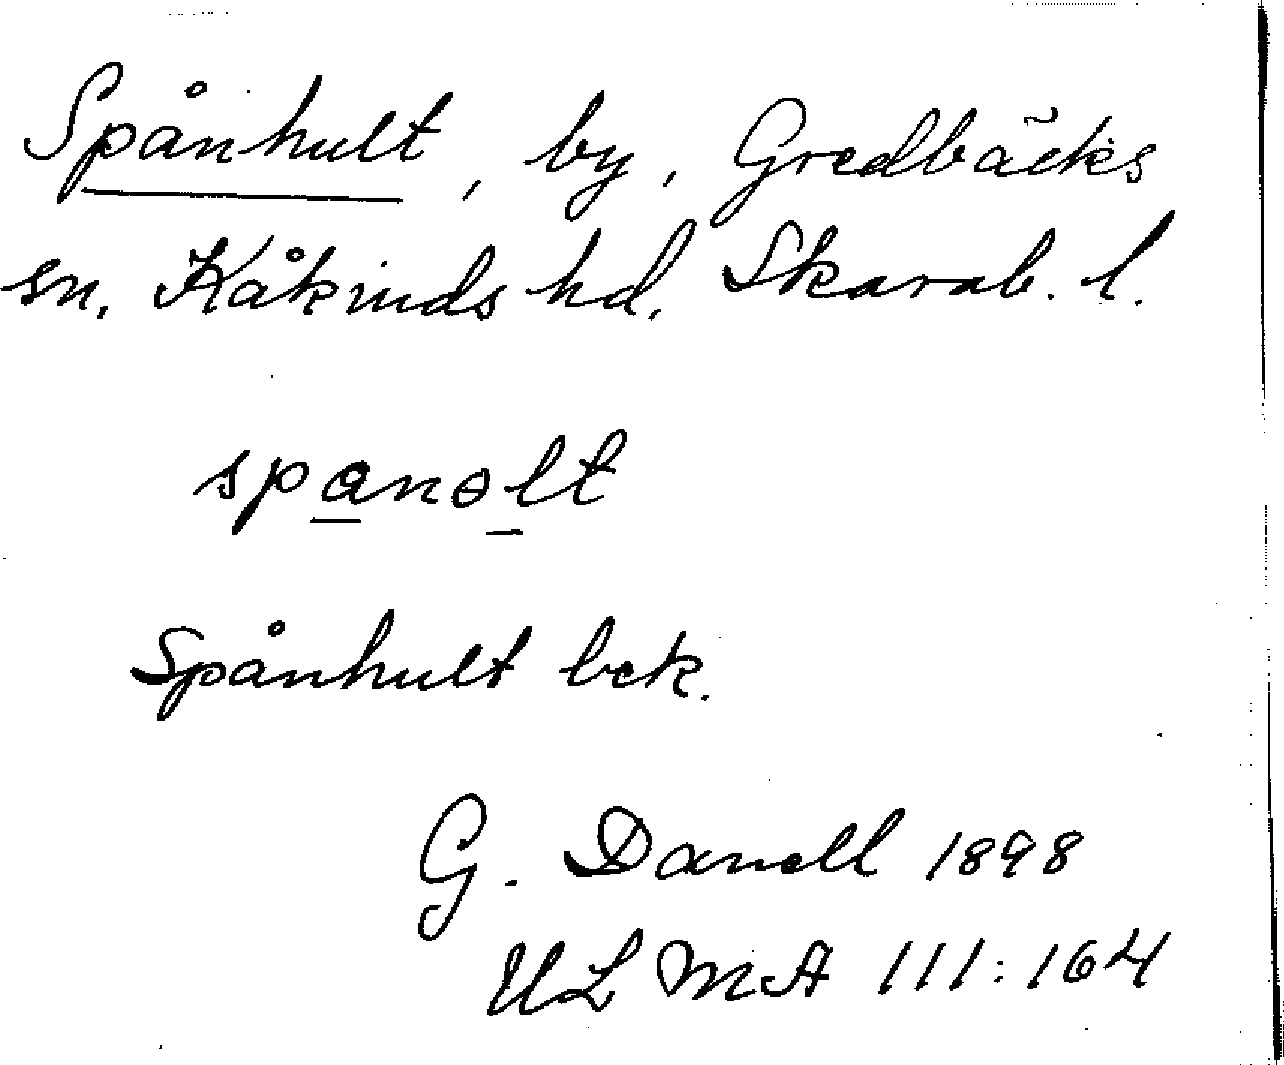 Spånhult, by, Gredbäcks
sn, Kåkinds hd, Skarab. l.
spanolt
Spånhult bek.
G. Danell 1898
ULMA 111:164